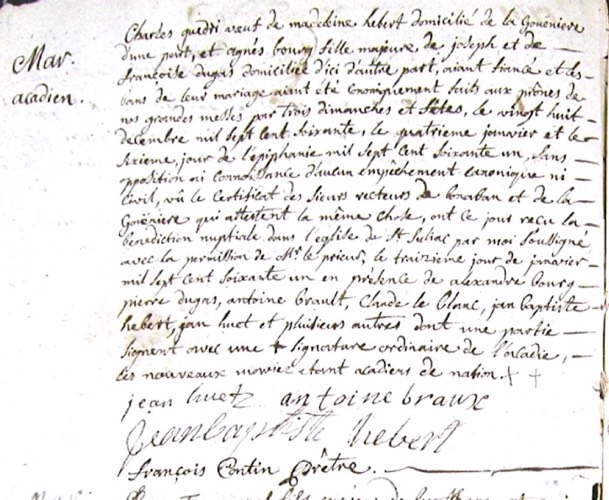 Mar.
acadien.
Charles quedri veuf de madeleine hebert domicilié de la Goueniere
d'une part, et agnès bourg fille majeure de joseph et de
françoise dugas domiciliée d'ici d'autre part, aiant fiancé et les
bans de leur mariage aiant été canoniquement faits aux prônes de
nos grandes messes par trois dimanches et fêtes, le vingt huit
decembre mil sept cent soixante, le quatrieme janvier et le
sixieme, jour de l'épiphanie mil sept cent soixante un, sans
opposition ni connoissance d'aucun empêchement canonique ni
civil, vû le certificat des sieurs recteurs de bonaban et de la
Gouëniere qui attestent la même chose, ont ce jour reçu la
benediction nuptiale dans l'eglise de St Suliac par moi soussigné
avec la permission de Mr le prieur, le treizième jour de janvier
mil sept cent soixante un en présence de alexandre bourg
pierre dugas, antoine brault, Claude le blanc, jan baptiste
hebert, jan huet et plusieurs autres dont une partie
signent avec une + signature ordinaire de l'acadie,
les nouveaux mariez etant acadiens de nation. + +
jean huet antoine braux
Jean Baptiste hebert
françois Contin Prêtre.